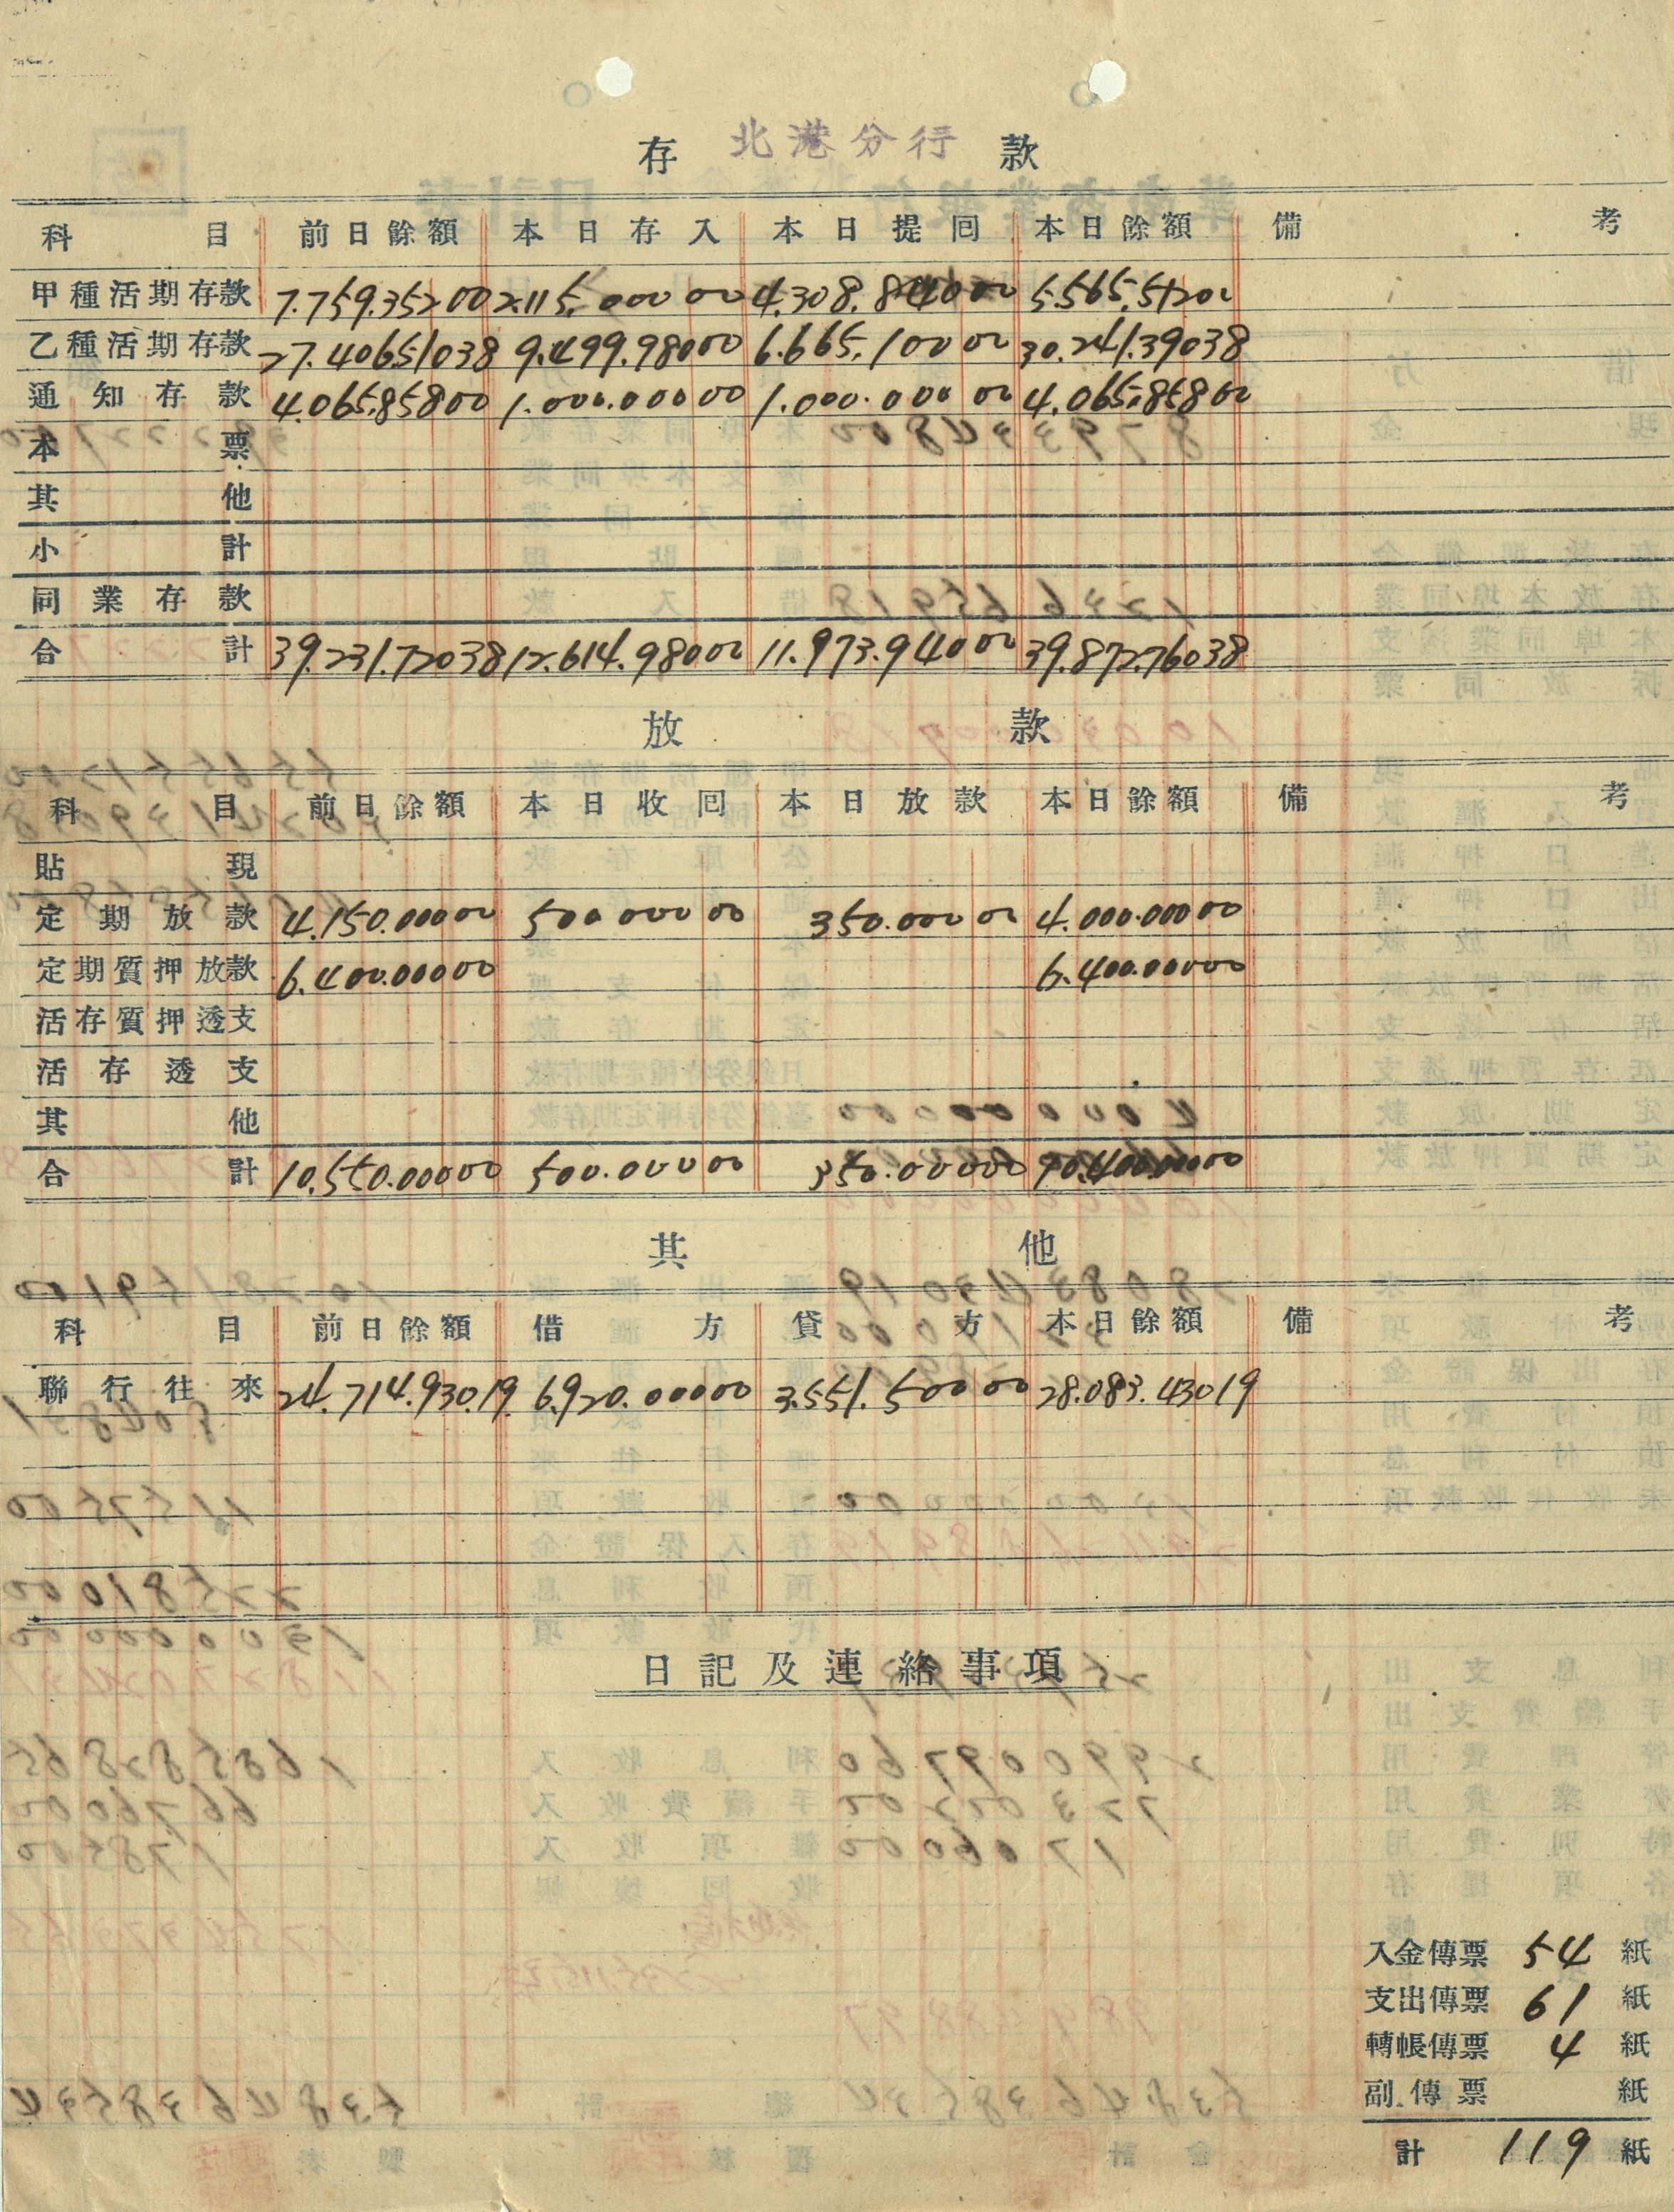 存 北港分行 款
科目 前日餘額 本日存入 本日提回 本日餘額 備考
甲種活期存款 7.759.352 00 2.115.000 00 4.308.840 00 5.565.512 00
乙種活期存款 27.406.510 38 9.499.980 00 6.665.100 00 30.241.390 38
通知存款 4.065.858 00 1.000.000 00 1.000.000 00 4.065.858 00
本票
其他
小計
同業存款
合計 39.231.720 38 12.614.980 00 11.973.940 00 39.872.760 38
放款
科目 前日餘額 本日收回 本日放款 本日餘額 備考
貼現
定期放款 4.150.000 00 500.000 00 350.000 00 4.000.000 00
定期質押放款 6.400.000 00 6.400.000 00
活存質押透支
活存透支
其他
合計 10.550.000 00 500.000 00 350.000 00 10.400.000 00
其他
科目 前日餘額 借方 貸方 本日餘額 備考
聯行往來 24.714.930.19 6.920.000 00 3.551.500 00 28.083.430 19
日記及連絡事項
入金傳票 54 紙
支出傳票 61 紙
轉帳傳票 4 紙
副傳票 紙
計 119 紙